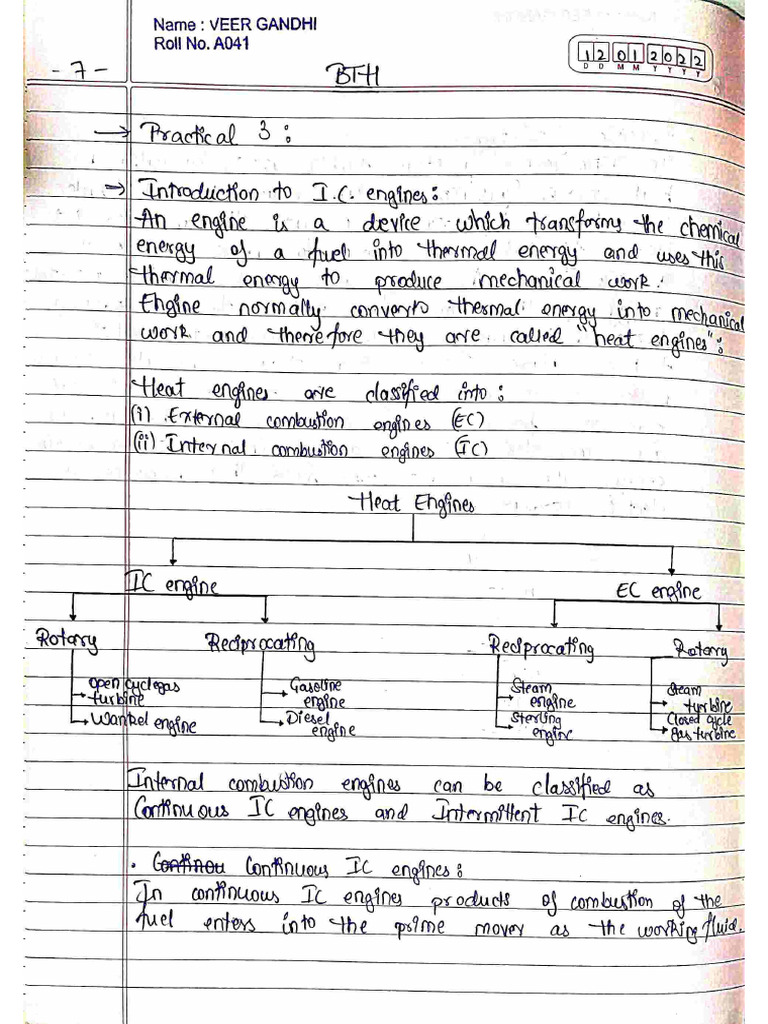 Name : VEER GANDHI
Roll No. A041
12 01 2022
D D M M Y Y Y Y
- 7 -
BTH
→ Practical 3 :
→ Introduction to I.C. engines :
An engine is a device which transforms the chemical
energy of a fuel into thermal energy and uses this
thermal energy to produce mechanical work.
Engine normally converts thermal energy into mechanical
work and therefore they are called "heat engines" :
Heat engines are classified into :
(i) External combustion engines (EC)
(ii) Internal combustion engines (IC)
Heat Engines
IC engine EC engine
Rotary Reciprocating Reciprocating Rotary
open cycle gas Gasoline Steam Steam
turbine engine engine turbine
Wankel engine Diesel Sterling Closed cycle
engine engine gas turbine
Internal combustion engines can be classified as
Continuous IC engines and Intermittent IC engines.
• Continou Continuous IC engines :
In continuous IC engines products of combustion of the
fuel enters into the prime mover as the working fluid.